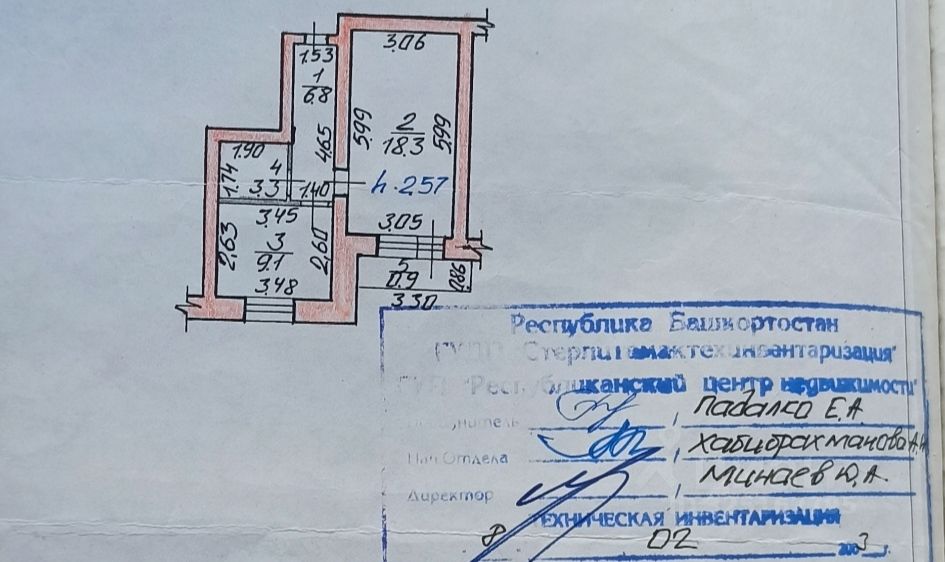 3.06
1.53
1
6.8
5.99
2
18.3
5.99
4.65
1.90
1.74
4
3.3
1.40
h-2.57
3.45
3.05
2.63
3
9.1
2.60
3.48
5
0.9
0.86
3.30
Республика Башкортостан
ГУДП "Стерлитамактехинвентаризация"
ГУП "Республиканский центр недвижимости"
Исполнитель , Падалко Е.А.
Нач Отдела , Хабибрахманова А.Н
Директор , Минаев Ю.А.
ТЕХНИЧЕСКАЯ ИНВЕНТАРИЗАЦИЯ
8 02 2003 г.